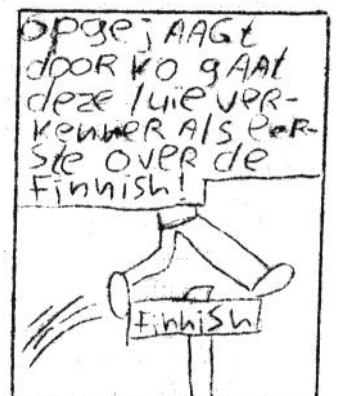 opgejAAGt
dooR KO gAAt
deze luie veR-
KenneR Als eeR-
Ste oveR de
Finnish!
Finnish